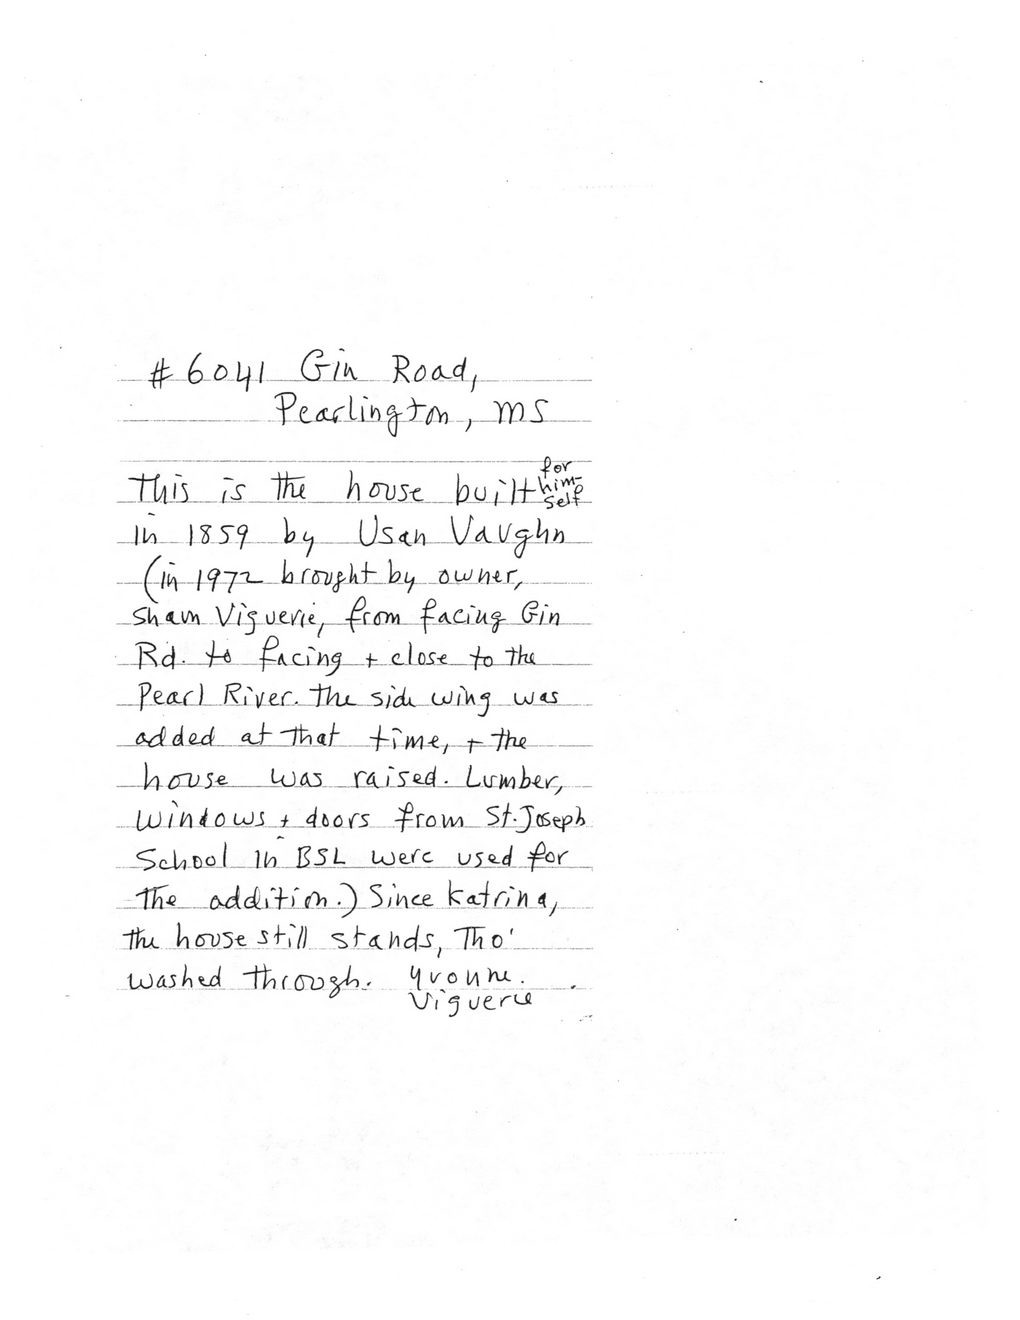 # 6041 Gin Road,
Pearlington, MS
for
This is the house built him-
self
in 1859 by Usan Vaughn
(in 1972 brought by owner,
Viguerie, from facing Gin
Rd. to facing + close to the
Pearl River. The side wing was
added at that time, + the
house was raised. Lumber,
windows + doors from St. Joseph
School in BSL were used for
the addition.) Since Katrina,
the house still stands, Tho'
washed through. Yvonne.
Viguerie